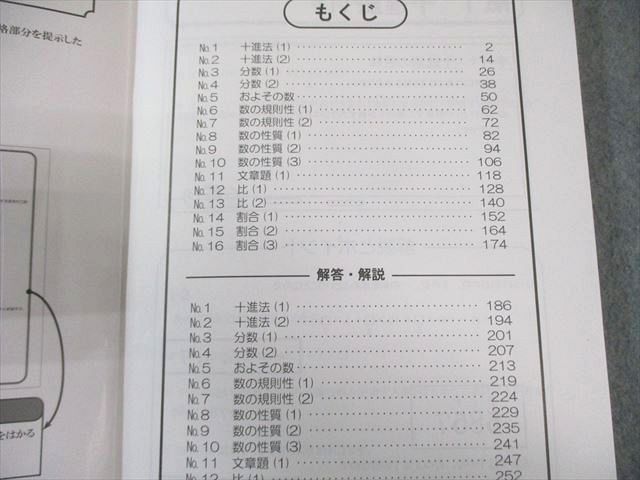 格部分を提示した
もくじ
№1 十進法(1) 2
№2 十進法(2) 14
№3 分数(1) 26
№4 分数(2) 38
№5 およその数 50
№6 数の規則性(1) 62
№7 数の規則性(2) 72
№8 数の性質(1) 82
№9 数の性質(2) 94
№10 数の性質(3) 106
№11 文章題(1) 118
№12 比(1) 128
№13 比(2) 140
№14 割合(1) 152
№15 割合(2) 164
№16 割合(3) 174
解答・解説
№1 十進法(1) 186
№2 十進法(2) 194
№3 分数(1) 201
№4 分数(2) 207
№5 およその数 213
№6 数の規則性(1) 219
№7 数の規則性(2) 224
№8 数の性質(1) 229
№9 数の性質(2) 235
№10 数の性質(3) 241
№11 文章題(1) 247
№12 比(1) 252
をはかる